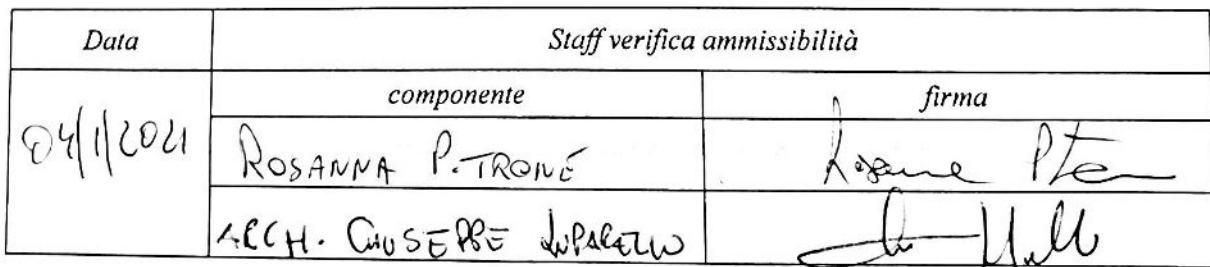 Data Staff verifica ammissibilità
componente firma
04/1/2021 ROSANNA P.TRONÉ Rosanna
ARCH. GIUSEPPE